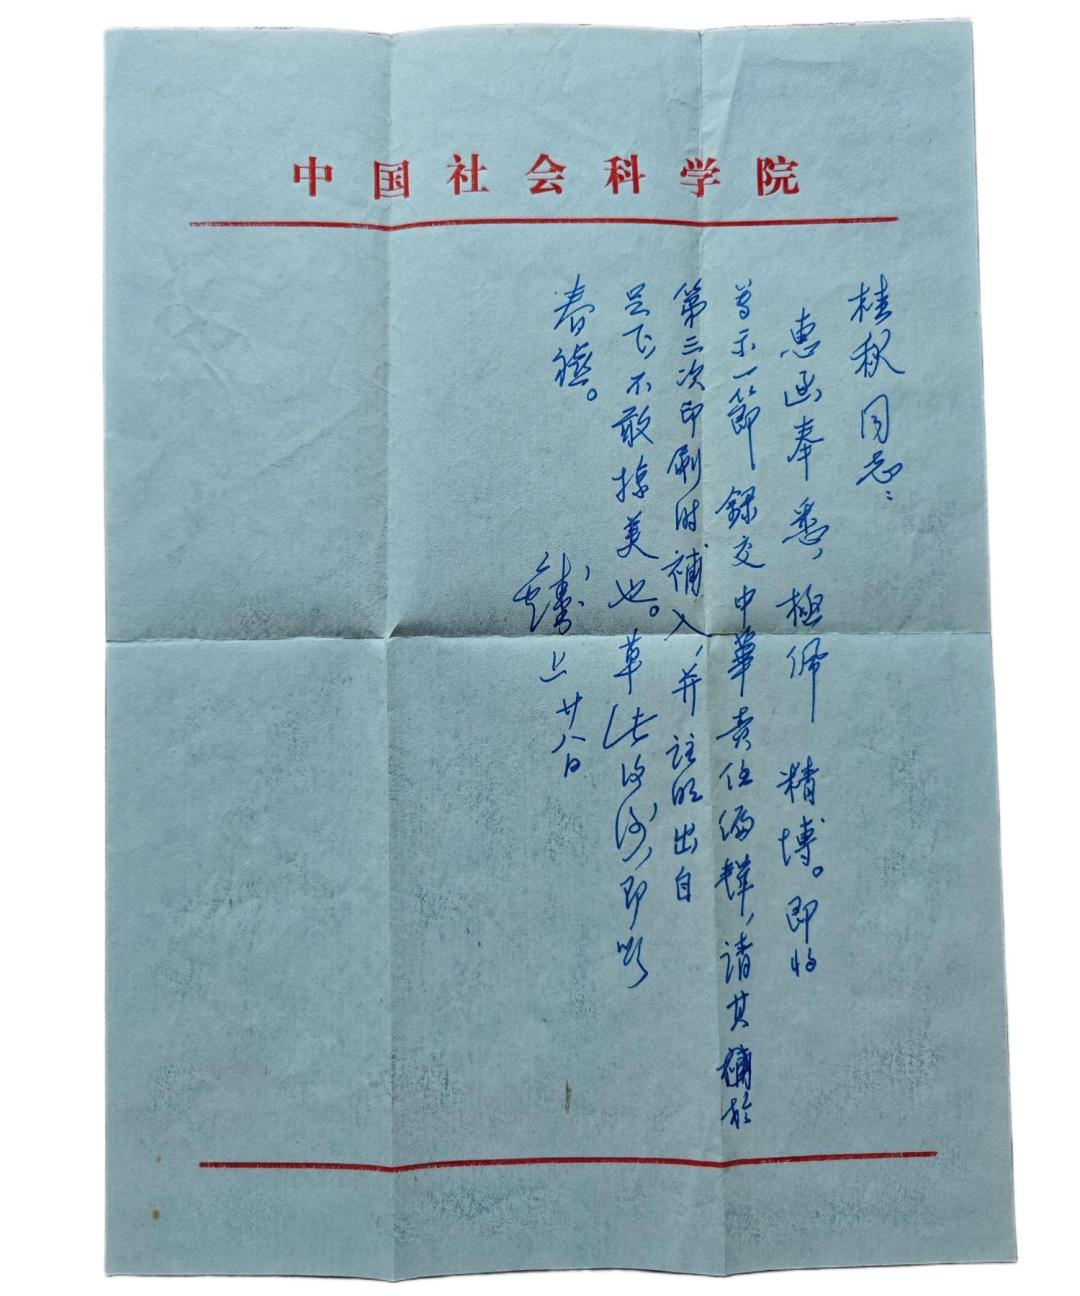 中国社会科学院
桂秋同志：
惠函奉悉，极佩精博。即将
尊示一節録交中華责任编辑，请其补於
第三次印刷时補入，并註明出自
足下，不敢掠美也。草此复谢，即颂
春禧。
上廿八日